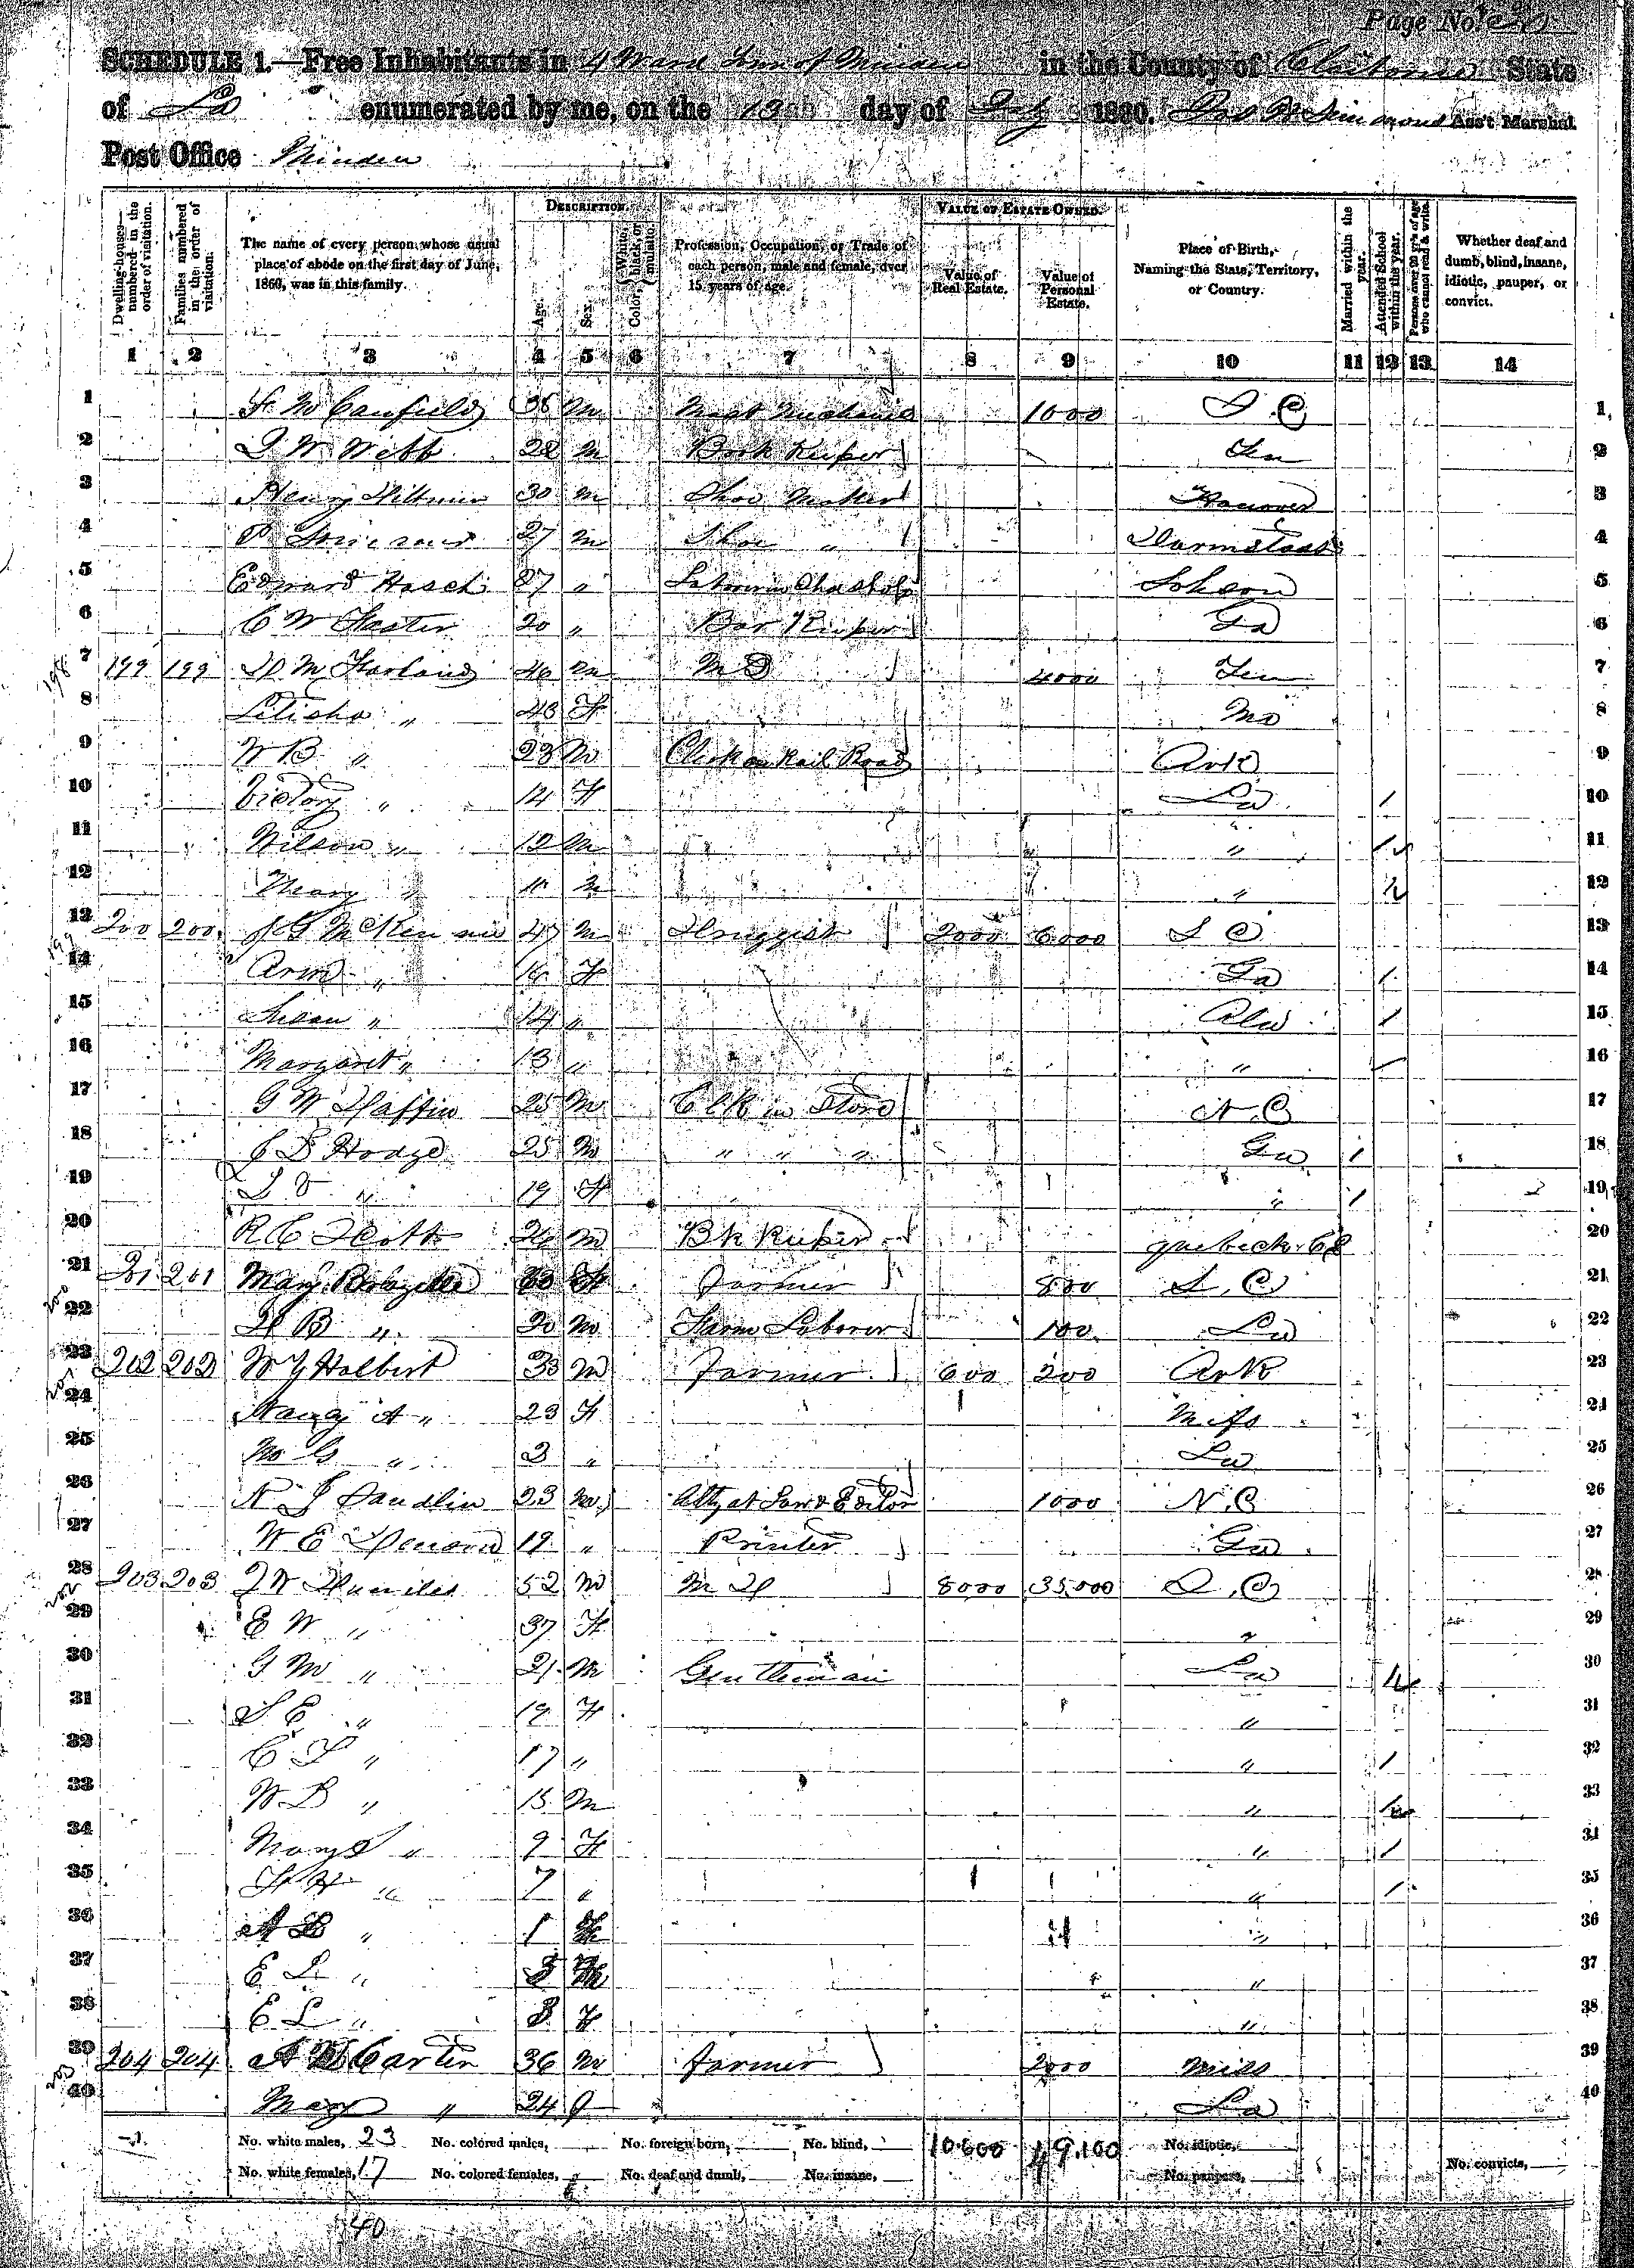 Page No.
SCHEDULE 1.—Free Inhabitants in 4 Ward Town of Minden in the County of Claiborne State
of La enumerated by me, on the 13th day of July 1860. Ass't Marshal.
Post Office Minden
Dwelling-houses—numbered in the order of visitation.
Families numbered in the order of visitation.
The name of every person whose usual place of abode on the first day of June, 1860, was in this family.
DESCRIPTION.
Age.
Sex.
Color, White, black, or mulatto.
Profession, Occupation, or Trade of each person, male and female, over 15 years of age.
VALUE OF ESTATE OWNED.
Value of Real Estate.
Value of Personal Estate.
Place of Birth, Naming the State, Territory, or Country.
Married within the year.
Attended School within the year.
Persons over 20 y'rs of age who cannot read & write.
Whether deaf and dumb, blind, insane, idiotic, pauper, or convict.
1 2 3 4 5 6 7 8 9 10 11 12 13 14
1 Canfield 38 M 1000 S.C 1
2 J W Webb 28 M Book Keeper Ten 2
3 Henry 30 M Shoe Maker Hanover 3
4 27 M Shoe " Darmstadt 4
5 Edward Hasch 27 " 5
6 C W 20 " Bar Keeper Ga 6
7 199 199 D M Farland 46 M M D 4000 Ten 7
8 Leticha " 43 F Mo 8
9 W B " 23 M Clerk on Rail Road Ark 9
10 Victory " 14 F La / 10
11 Wilson " 12 M " / 11
12 " M " 12
13 200 200 J G McKennie 47 M Druggist 2000 6000 S C 13
14 Ann " 16 F Ga / 14
15 Susan " 14 " Ala / 15
16 Margaret " 13 " " / 16
17 G W 25 M Clk in Store N.C 17
18 J B Hodge 25 M " " " Ga / 18
19 " 19 F " / 19
20 R C Scott 26 M Bk Keeper Quebeck C E 20
21 201 201 Mary 60 F Farmer 800 S.C 21
22 H B " 20 M Farm Laborer 100 La 22
23 202 202 W Y Holbert 33 M Farmer 600 200 Ark 23
24 Nancy A " 23 F Miss 24
25 " 3 " La 25
26 N J Sandlin 23 M Atty at Law & Editor 1000 N.C 26
27 W E 19 " Printer Ga 27
28 203 203 J W 52 M M D 8000 35,000 S.C 28
29 E W " 37 F " 29
30 G M " 21 M Gentleman La 30
31 S E " 19 F " 31
32 C P " 17 " " / 32
33 W B " 15 M " 33
34 Mary " 9 F " / 34
35 " 7 " " / 35
36 A B " 1 " 36
37 E L " 3 " 37
38 E L " 3 F " 38
39 204 204 A B Carter 36 M Farmer 2000 Miss 39
40 Mary " 24 f La 40
No. white males, 23 No. colored males, No. foreign born, No. blind, 10.600 49.100 No. idiotic,
No. white females, 17 No. colored females, No. deaf and dumb, No. insane, No. paupers, No. convicts,
40